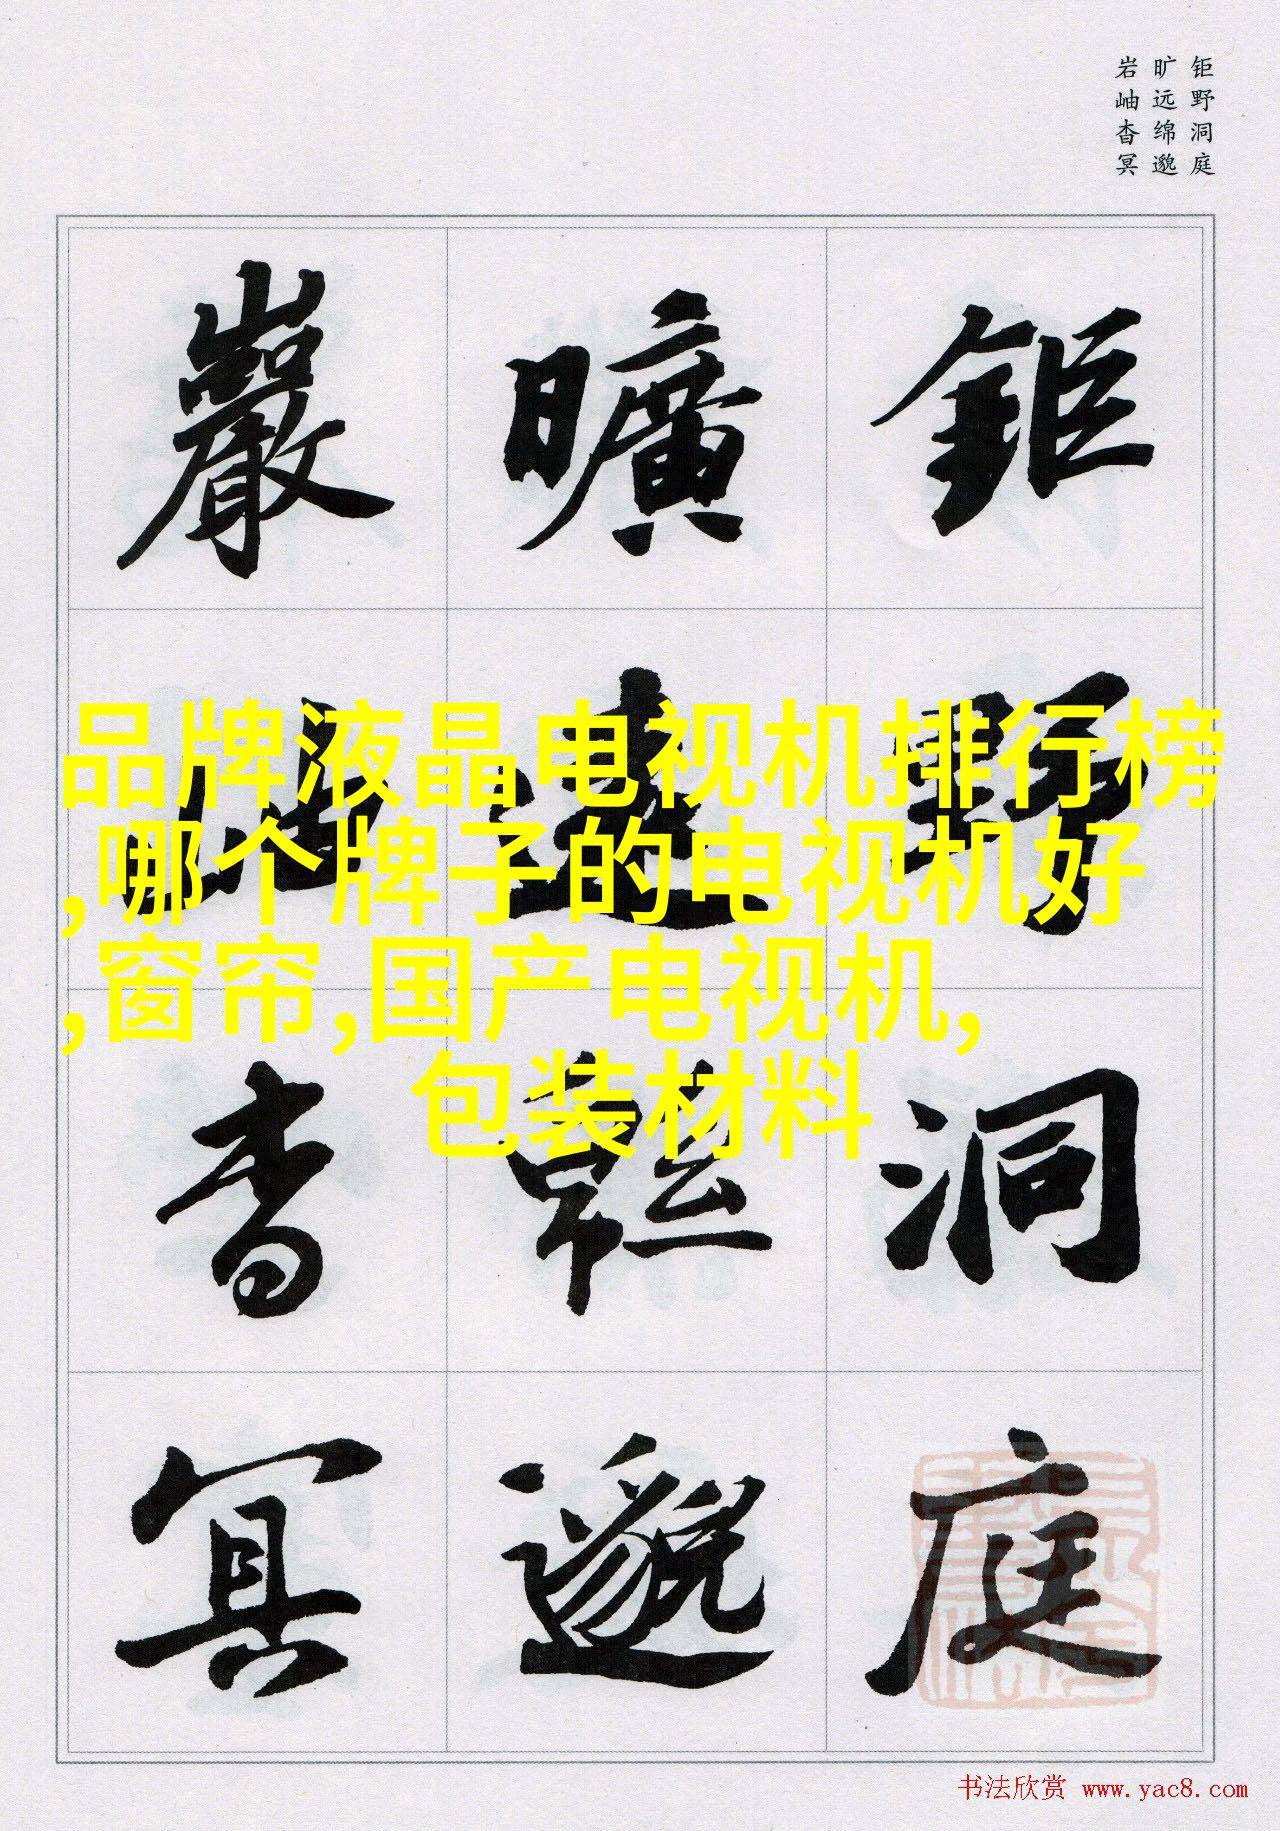 钜野洞庭
旷远绵邈
岩岫杳冥
鉅野洞庭
曠遠緜邈
巖岫杳冥
品牌液晶电视机排行榜
,哪个牌子的电视机好
,窗帘,国产电视机,
包装材料
书法欣赏 www.yac8.com